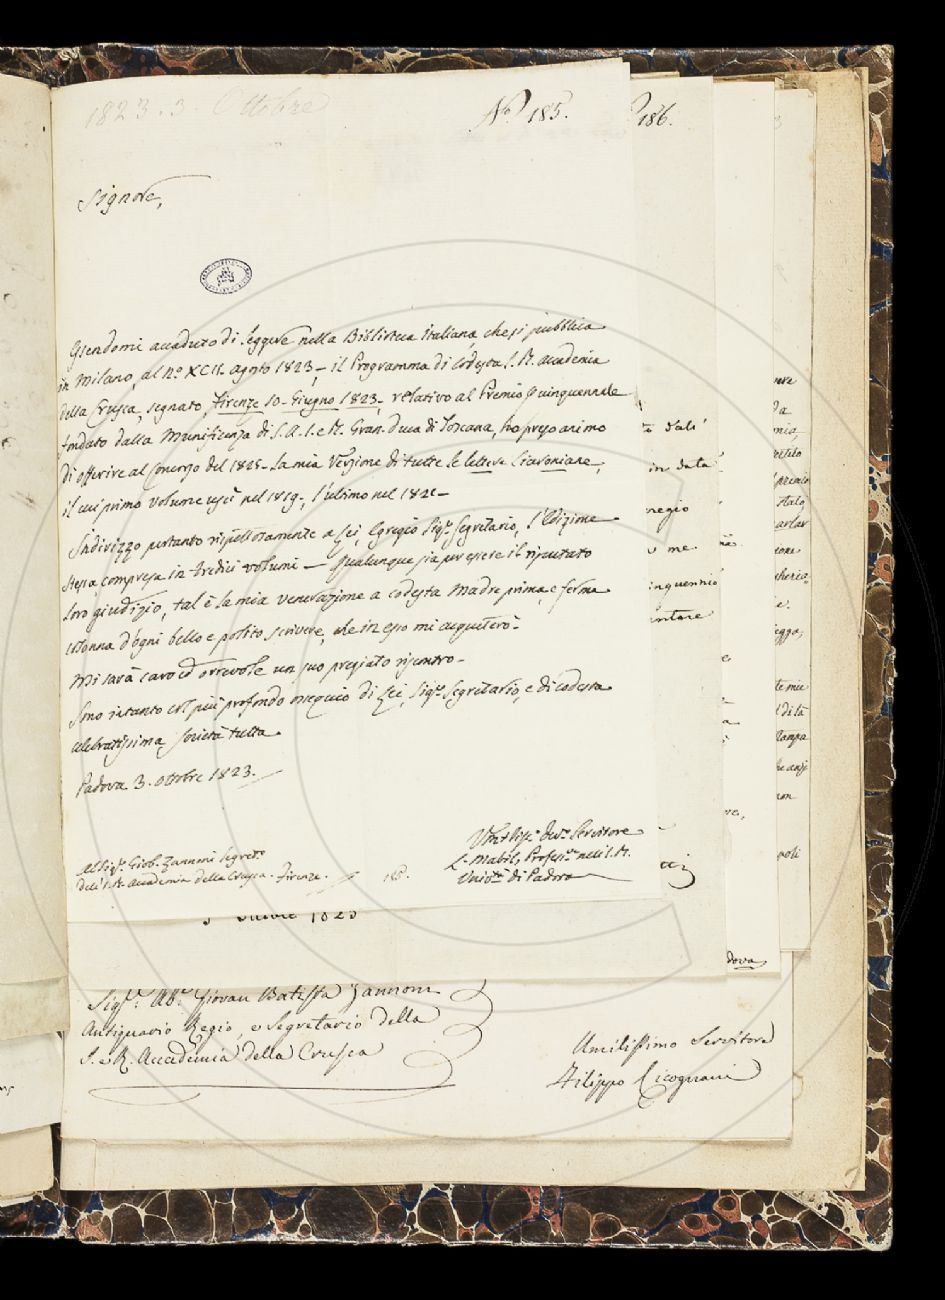 1823. 3. Ottobre
No. 185.
186.
Signore,
Essendomi accaduto di leggere nella Biblioteca Italiana, che si pubblica
in Milano, al no. XCII. agosto 1823, il Programma di codesta I. R. accademia
della Crusca, segnato, Firenze 10. Giugno 1823, relativo al Premio quinquennale
fondato dalla Munificenza di S. A. I. e R. Gran-Duca di Toscana, ho preso animo
di offerire al Concorso del 1825 la mia Versione di tutte le lettere Ciceroniane,
il cui primo volume uscì nel 1819, l'ultimo nel 1821
Indirizzo pertanto rispettosamente a Lei, Egregio Sigr. Segretario, l'Edizione
stessa compresa in tredici volumi — Qualunque sia per essere il riputato
loro giudizio, tal è la mia venerazione a codesta Madre prima, e ferma
colonna d'ogni bello e polito scrivere, che in esso mi acqueterò.
Mi sarà caro ed orrevole un suo pregiato riscontro.
Sono intanto col più profondo ossequio di Lei, Sigr. Segretario, e di codesta
celebratissima società tutta
Padova 3. ottobre 1823.
Servitore
L. Mabil, Profess.e nell'I. R.
Univ.tà di Padova
Al Sigr. Giob. Zannoni Segret.o
dell'I. R. Accademia della Crusca. Firenze.
185.
Ottobre 1823
dova
Sigr. Ab.e Giovan Batista Zannoni
Antiquario Regio, e Segretario della
I. e R. Accademia della Crusca
Umilissimo Servitore
Filippo Cicognani